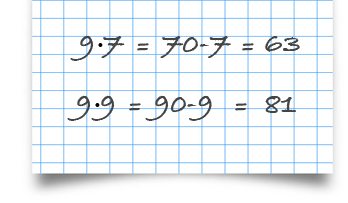 9·7 = 70-7 = 63
9·9 = 90-9 = 81